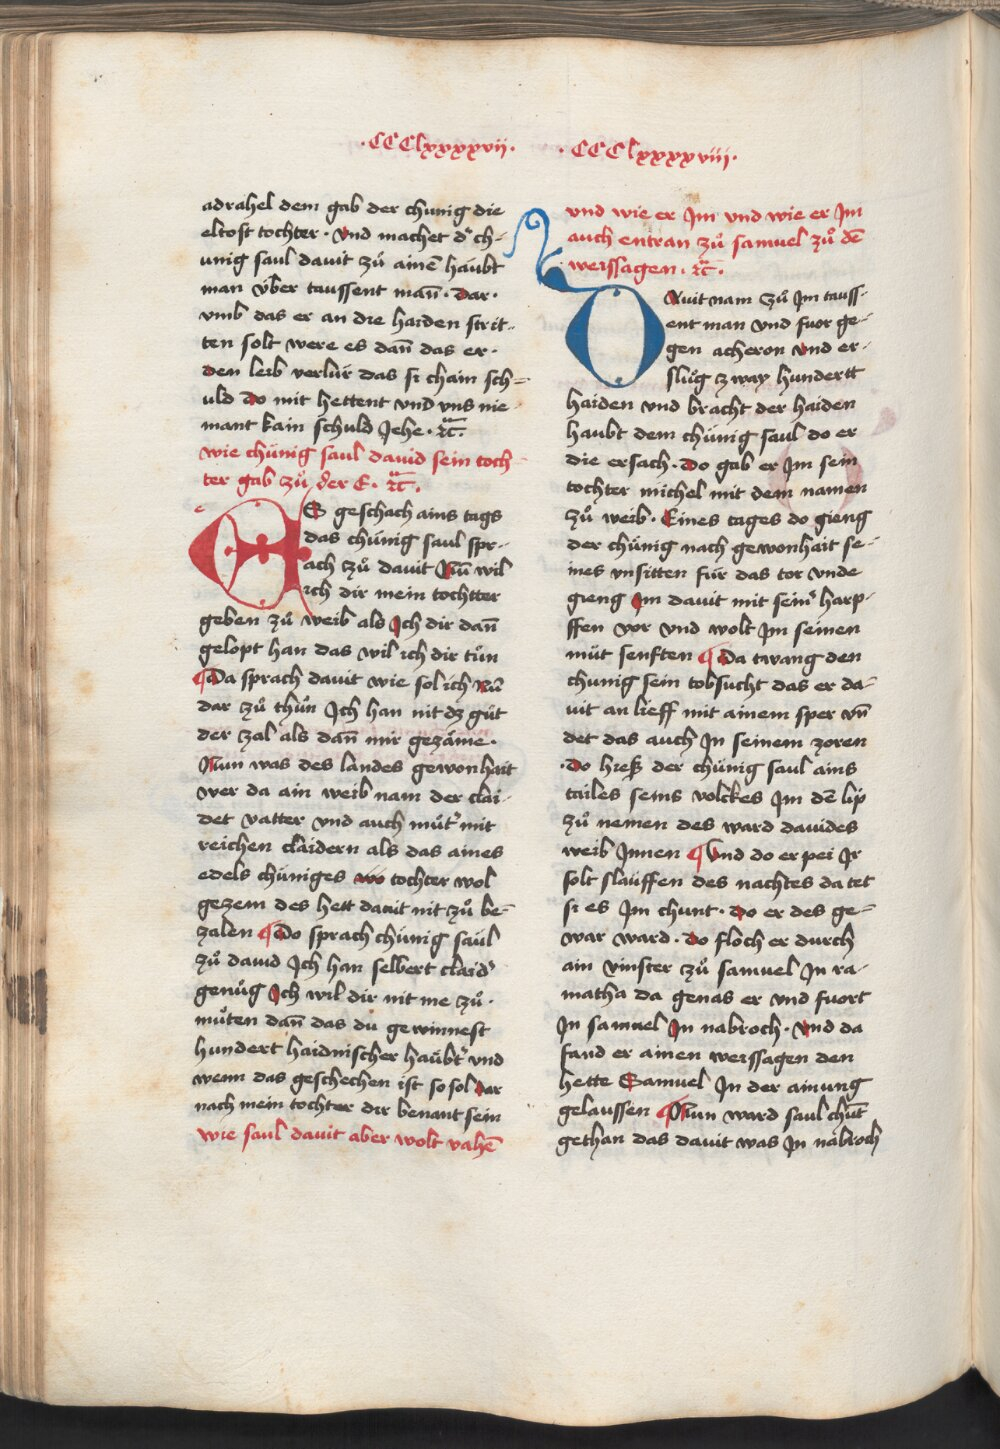 ·CCClxxxxvii·
adrahel dem gab der chunig die
eltost tochter · Vnd machet d̕ ch-
unig saul dauit zů ainē haubt
man v́ber taussent mañ · dar ·
vmb das er an die haiden strit-
ten solt were es dañ das er ·
den leib verlúr das si chain sch-
uld do mit hettent vnd vns nie-
mant kain schuld Jehe · ꝛc̃.
wie chúnig saul dauid sein toch
ter gab zů der E · ꝛc̃.
ES geschach ains tags
das chúnig saul spr-
ach zů dauit Nũ wil
ich dir mein tochtter
geben zů weib als Ich dir dañ
gelopt han das wil ich dir tůn
¶ Da sprach dauit wie sol ich nũ
dar zů thůn Ich han nit dz gůt
der zal als dañ mir gezáme ·
Nun was des landes gewonhait
wer da ain weib nam der clai-
det vatter vnd auch můt̕ mit
reichen claidern als das aines
edels chúniges wo tochter wol
gezem des hett dauit nit zů be-
zalen ¶ Do sprach chúnig saúl
zů dauid Ich han selbert claid̕
genůg Ich wil dir nit me zů ·
můten dañ das du gewinnest
hundert haidnischer haúbt̕ vnd
wenn das geschechen ist so sol dar
nach mein tochter dir benant sein
wie saul dauit aber wolt vahē
· CCClxxxxviii·
vnd wie er Im vnd wie er Im
auch entran zů samuel zů dē
weissagen · ꝛc̃.
DAuit nam zů Im tauss-
ent man vnd fuor ge-
gen acheron vnd er-
slůg zway hundertt
haiden vnd bracht der haiden
haubt dem chúnig saul do er
die ersach · do gab er Im sein
tochter michel mit dem namen
zů weib · Eines tages do gieng
der chúnig nach gewonhait se-
ines vnsitten fúr das tor vnde
gieng Im dauit mit sein̕ harp-
ffen vor vnd wolt Im seinen
můt senften ¶ Da twang den
chunig sein tobsucht das er da-
uit an lieff mit ainem sper vñ
det das auch In seinem zoren
· do hieß der chúnig saul ains
tailes seins volckes Im dē lip
zů nemen des ward dauides
weib Innen ¶ Vnd do er pei Ir
solt slauffen des nachtes da tet
si es Im chunt · do er des ge-
war ward · do floch er durch
ain vinster zů samuel In ra-
matha da genas er vnd fuort
In samuel In nabroch · vnd da
fand er ainen weissagen den
hette Samuel In der ainung
gelaussen ¶ Nun ward saul chũt
gethan das dauit was In nabroch